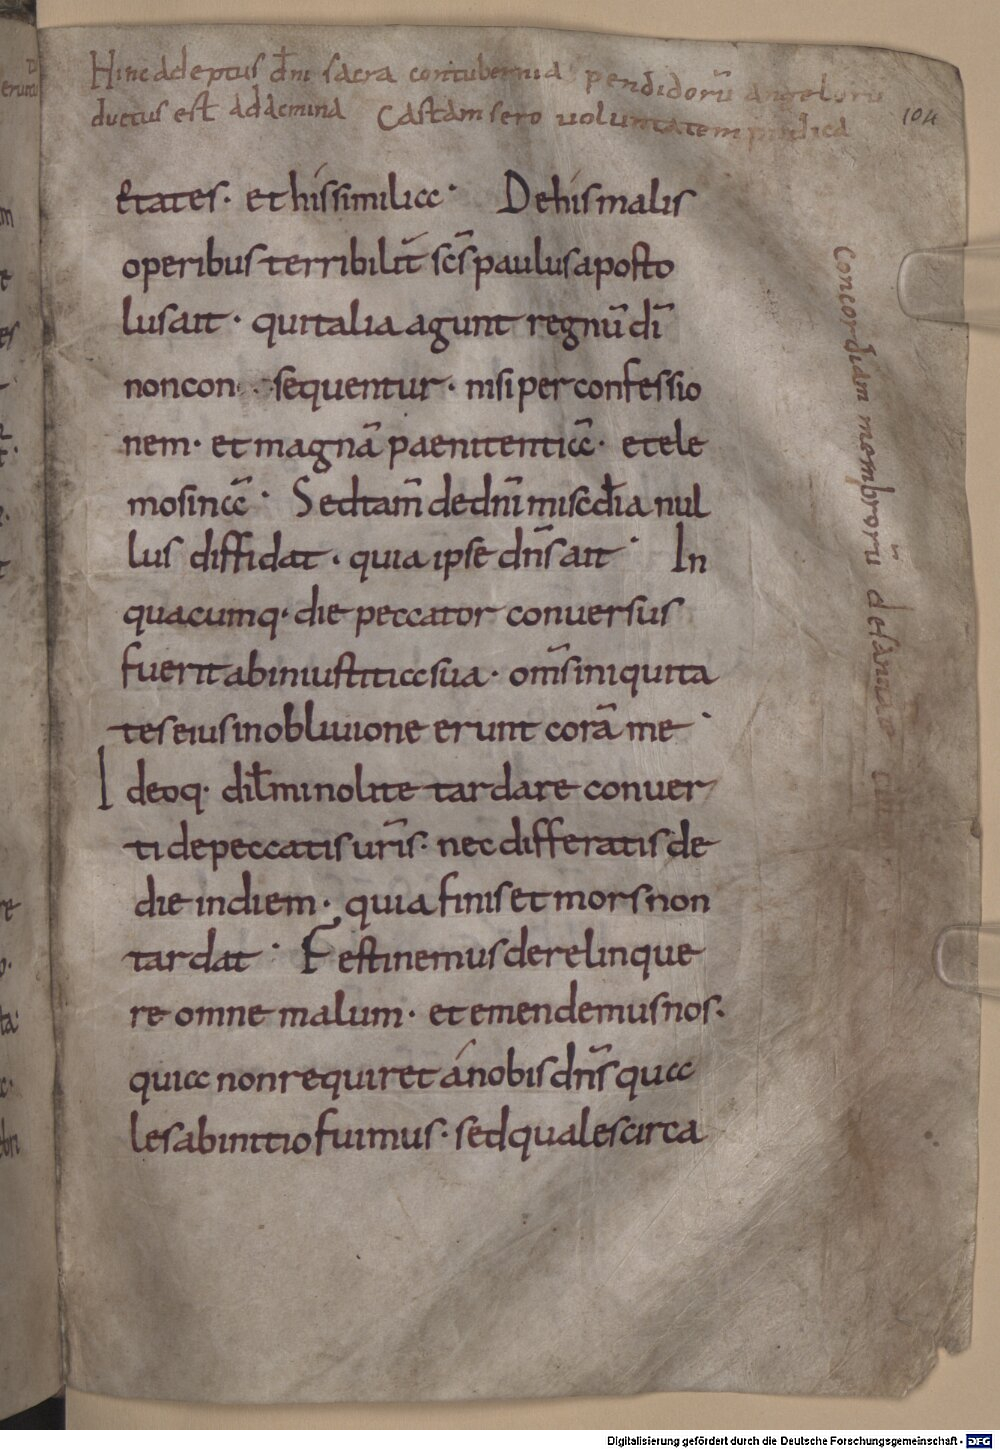 Hinc adeptus dn̄i sacra contubernia pendidorū angelorū
ductus est ad acmina Castam sero voluntatem pudica
104
etates· et hís similia· De hís malis
operibus terribilit̄ sc̄s paulus aposto
lus ait· qui talia agunt regnū dī
non con sequentur· nisi per confessio
nem· et magnā paenitentiā· et ele
mosinā· Sed tam̄ de dn̄i misc̄dia nul
lus diffidat· quia ipse dn̄s ait· In
quacumq· die peccator conuersus
fuerit ab iniustitia sua· om̄s iniquita
tes eius in obliuione erunt corā me·
Ideoq· dil̄mi nolite tardare conuer
ti de peccatis ur̄is· nec differatis de
die in diem· quia finis et mors non
tardat· Festinemus derelinque
re omne malum· et emendemus nos·
quia non requiret á nobis dn̄s qua
les ab initio fuimus· sed quales circa
Concordiam membrorū
Digitalisierung gefördert durch die Deutsche Forschungsgemeinschaft - DFG